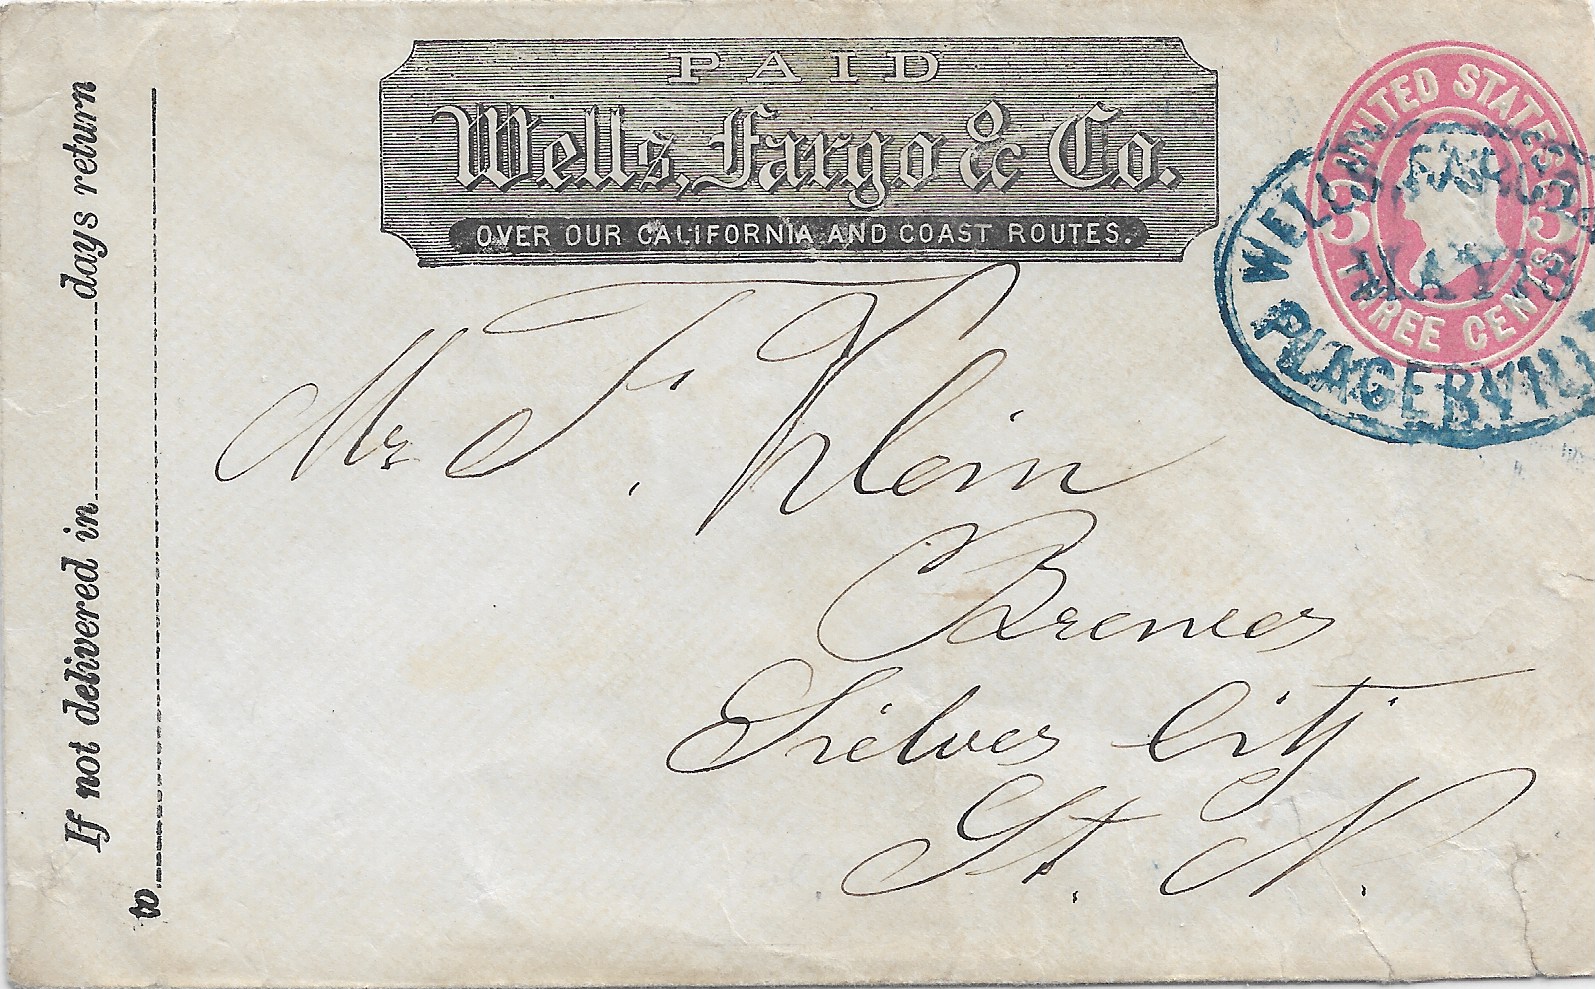 PAID
Wells, Fargo & Co.
OVER OUR CALIFORNIA AND COAST ROUTES.
UNITED STATES
3 3
THREE CENTS
WELLS, FARGO
MAY 18
PLACERVILL
If not delivered in days return
to
Mr F. Klein
Brewer
Sielver City
St. N.